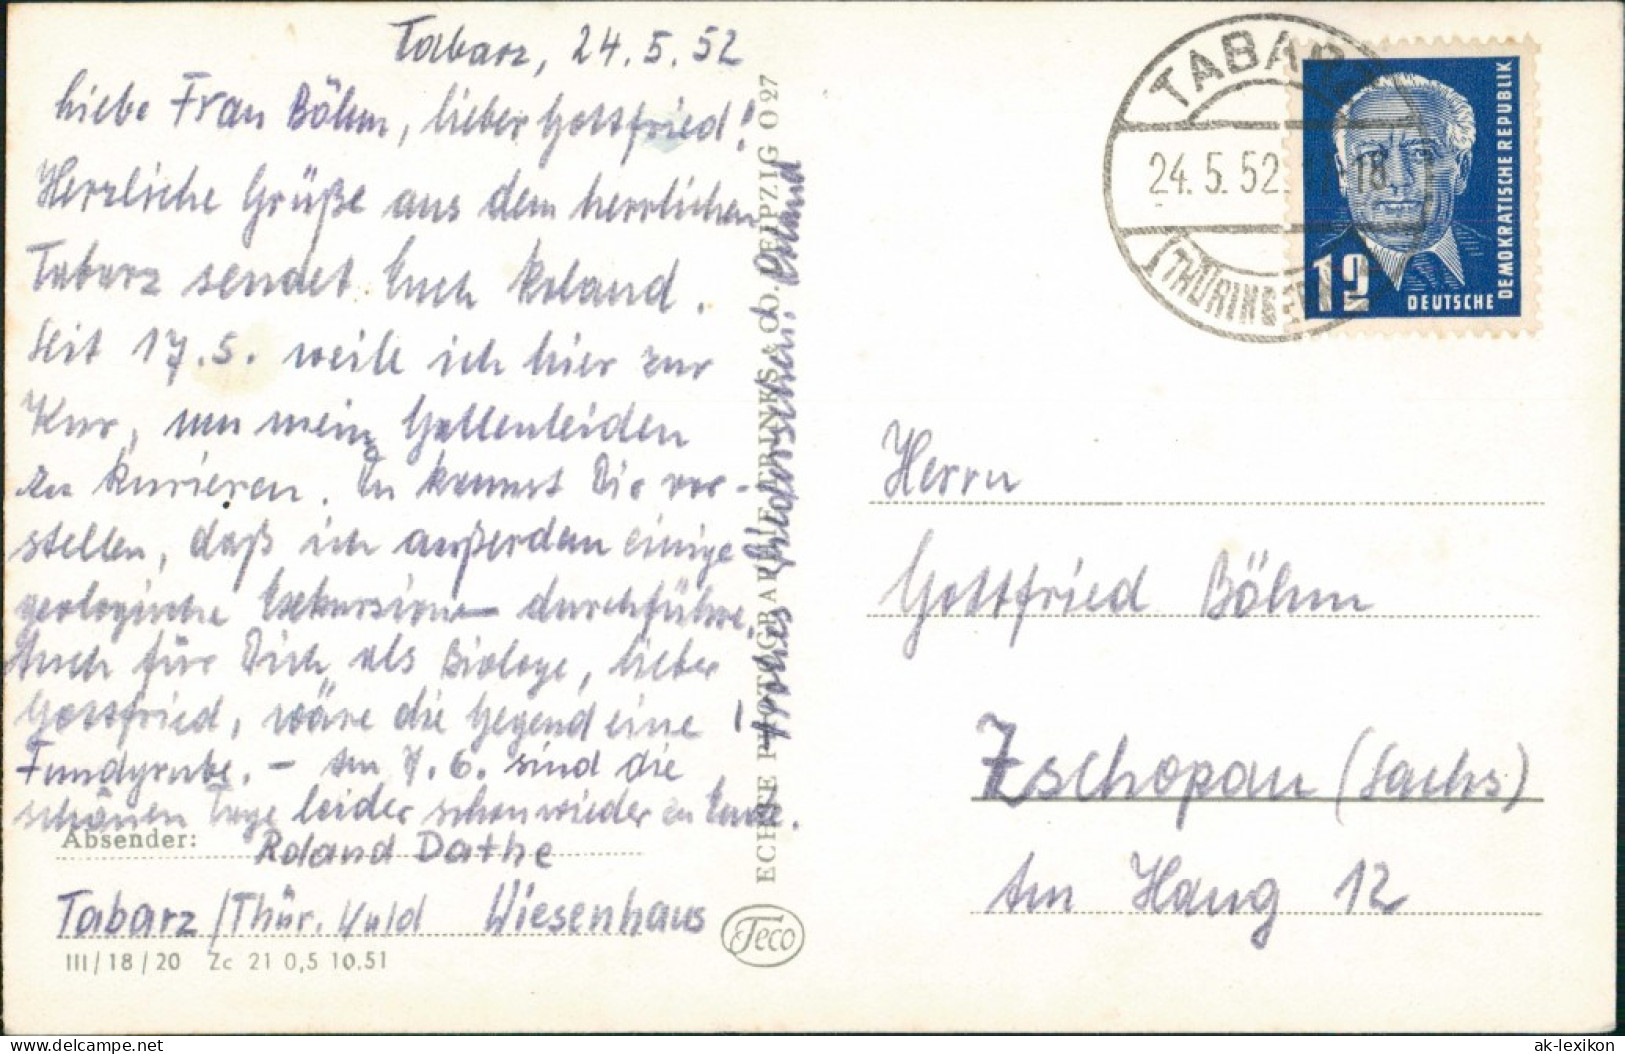 Tabarz, 24.5.52
Liebe Frau Böhm, lieber Gottfried!
Herzliche Grüße aus dem herrlichen
Tabarz sendet Euch Roland.
Seit 17.5. weile ich hier zur
Kur, um mein Gallenleiden
zu kurieren. Du kannst Dir vor-
stellen, daß ich außerdem einige
geologische Exkursionen durchführe.
Auch für Dich, als Biologe, lieber
Gottfried, wäre die Gegend eine
Fundgrube. – Am 7.6. sind die
schönen Tage leider schon wieder zu Ende.
Frohes Wiedersehen, Roland
Absender: Roland Dathe
Tabarz/Thür. Wald Wiesenhaus
III/18/20 Zc 21 0,5 10.51
ECHTE PHOTOGRAPHIE BRINK & CO. LEIPZIG O 27
Feco
TABARZ
24.5.52 -18
THÜRINGEN
12
DEUTSCHE DEMOKRATISCHE REPUBLIK
Herrn
Gottfried Böhm
Zschopau (Sachs)
Am Hang 12
ak-lexikon
delcampe.net